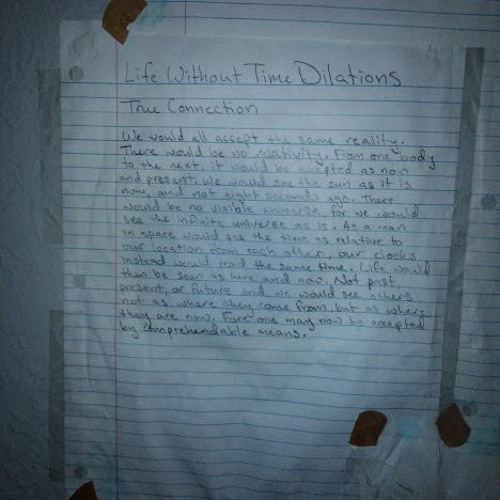 Life Without Time Dilations
True Connection
We would all accept the same reality.
There would be no relativity. From one body
to the next, it would be accepted as now
and present. We would see the sun as it is
now, and not eight seconds ago. There
would be no visible universe, for we would
see the infinite universe as is. As a man
in space would see the time as relative to
our location from each other, our clocks
instead would read the same time. Life would
then be seen as here and now. Not past,
present, or future and we would see others
not as where they come from, but as where
they are now. For one may now be accepted
by comprehendable means.